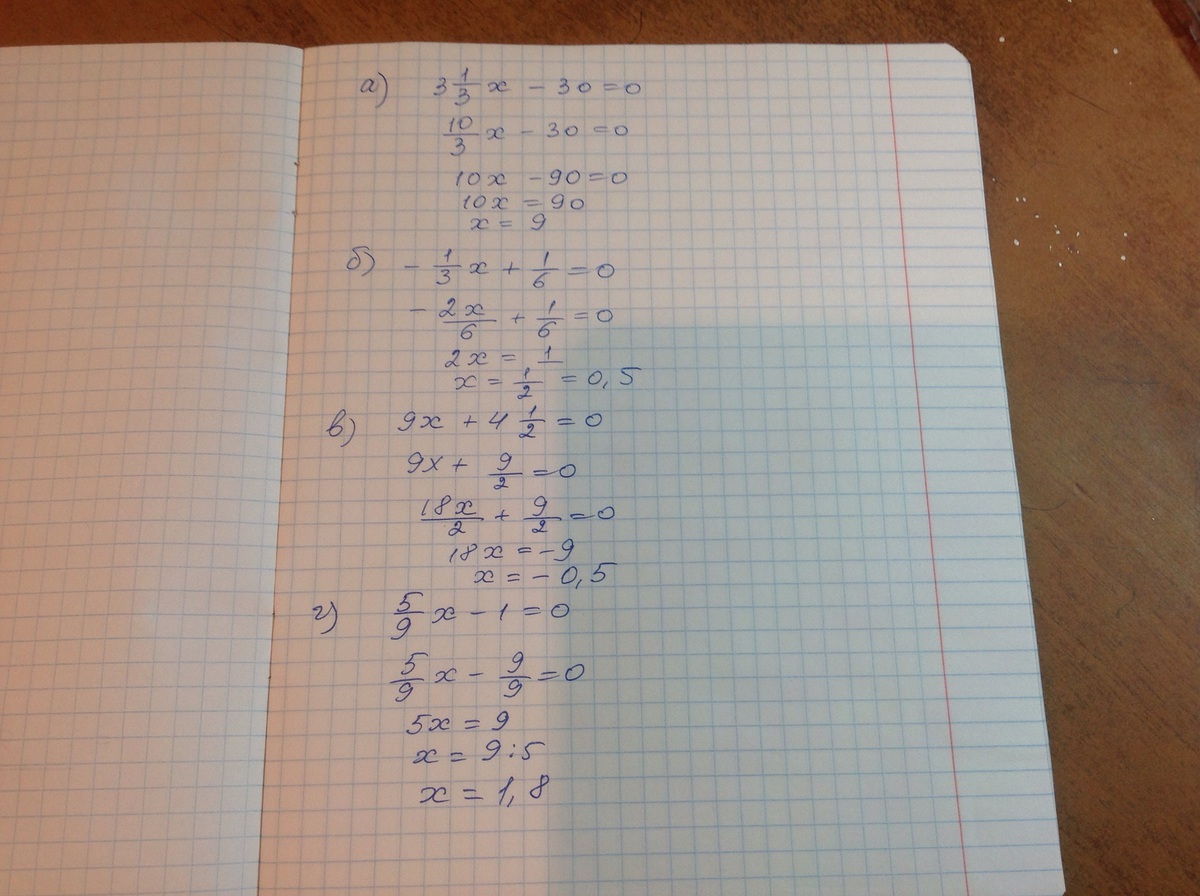 а) 3 1/3 x - 30 = 0
10/3 x - 30 = 0
10x - 90 = 0
10x = 90
x = 9
б) - 1/3 x + 1/6 = 0
- 2x/6 + 1/6 = 0
2x = 1
x = 1/2 = 0,5
в) 9x + 4 1/2 = 0
9x + 9/2 = 0
18x/2 + 9/2 = 0
18x = -9
x = - 0,5
г) 5/9 x - 1 = 0
5/9 x - 9/9 = 0
5x = 9
x = 9:5
x = 1,8